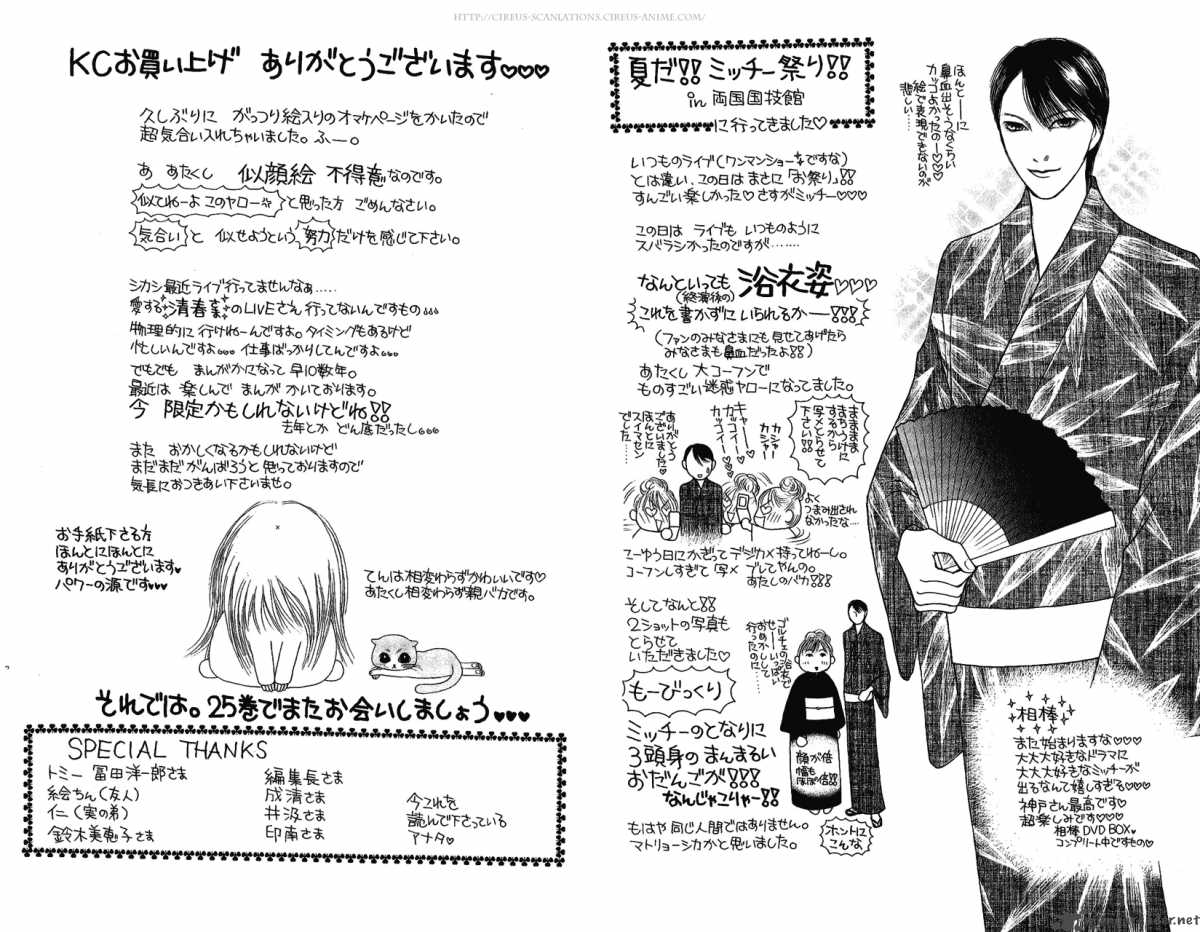 HTTP://CIREUS-SCANLATIONS.CIREUS-ANIME.COM/
夏だ!! ミッチー祭り!!
in 両国国技館
に行ってきました♡
いつものライブ(ワンマンショーですな)
とは違い、この日は まさに「お祭り」!!
すんごい楽しかった♡ さすがミッチー♡♡♡
この日は ライブも いつものように
スバラシかったのですが……
なんといっても 浴衣姿♡♡♡
(終演後の)
これを書かずに いられるかー!!!
(ファンのみなさまにも 見せてあげたら
みなさまも鼻血だったよ!!)
あたくし 大コーフンで
ものすごい迷惑ヤローになってました。
ほんとーーに
鼻血出そうなくらい
カッコよかったのー♡♡♡
絵で表現できないのが
悲しい……
まままま
まちうけに
するから
写メとらせて
下さい!!
カシャー
カシャー
キャー
カッコイー
ありがとう
ございました♡
ほんとに
スイマセン
でした……
よく
つまみ出され
なかったな…
こーゆう日にかぎって デジカメ持ってねーし。
コーフンしすぎて 写メ ブレてやんの。
あたしのバカ!!!
そしてなんと!!
2ショットの写真も
とらせて
いただきました♡
ゴルチェの浴衣で
せーいっぱい
おめかしして
行ったのに……
もーびっくり
ミッチーのとなりに
3頭身のまんまるい
おだんごが!!!
なんじゃこりゃー!!
顔が倍
幅も
ほぼ倍!!
ホントに
こんな
もはや 同じ人間ではありません。
マトリョーシカかと思いました。
相棒
また始まりますな♡♡♡
大大大好きなドラマに
大大大好きなミッチーが
出るなんて嬉しすぎる♡♡♡
神戸さん最高です♡
超楽しみです♡♡♡
相棒DVD BOX♥
コンプリート中ですもの♡
KCお買い上げ ありがとうございます♡♡♡
久しぶりに がっつり絵入りのオマケページをかいたので
超気合い入れちゃいました。ふー。
あ あたくし 似顔絵 不得意なのです。
似てねーよ このヤローと思った方 ごめんなさい。
気合いと 似せようという努力だけを感じて下さい。
シカシ最近ライブ行ってませんなぁ……
愛する清春様のLIVEさえ行ってないんですもの。。。
物理的に行けねーんですよ。タイミングもあるけど
忙しいんですよ。。。仕事ばっかりしてんですよ。。。
でもでも まんがかになって 早10数年。
最近は 楽しんで まんが かいております。
今 限定かもしれないけどね!!
去年とか どん底だったし。。。
また おかしくなるかもしれないけど
まだまだ がんばろうと思っておりますので
気長におつきあい下さいませ。
お手紙下さる方
ほんとにほんとに
ありがとうございます♥
パワーの源です♥♥♥
てんは相変わらずかわいいです♡
あたくし相変わらず親バカです。
それでは。25巻でまたお会いしましょう♥♥♥
SPECIAL THANKS
トミー 冨田洋一郎さま
絵ちん(友人)
仁(実の弟)
鈴木美恵子さま
編集長さま
成清さま
井汲さま
印南さま
今これを
読んで下さっている
アナタ♡